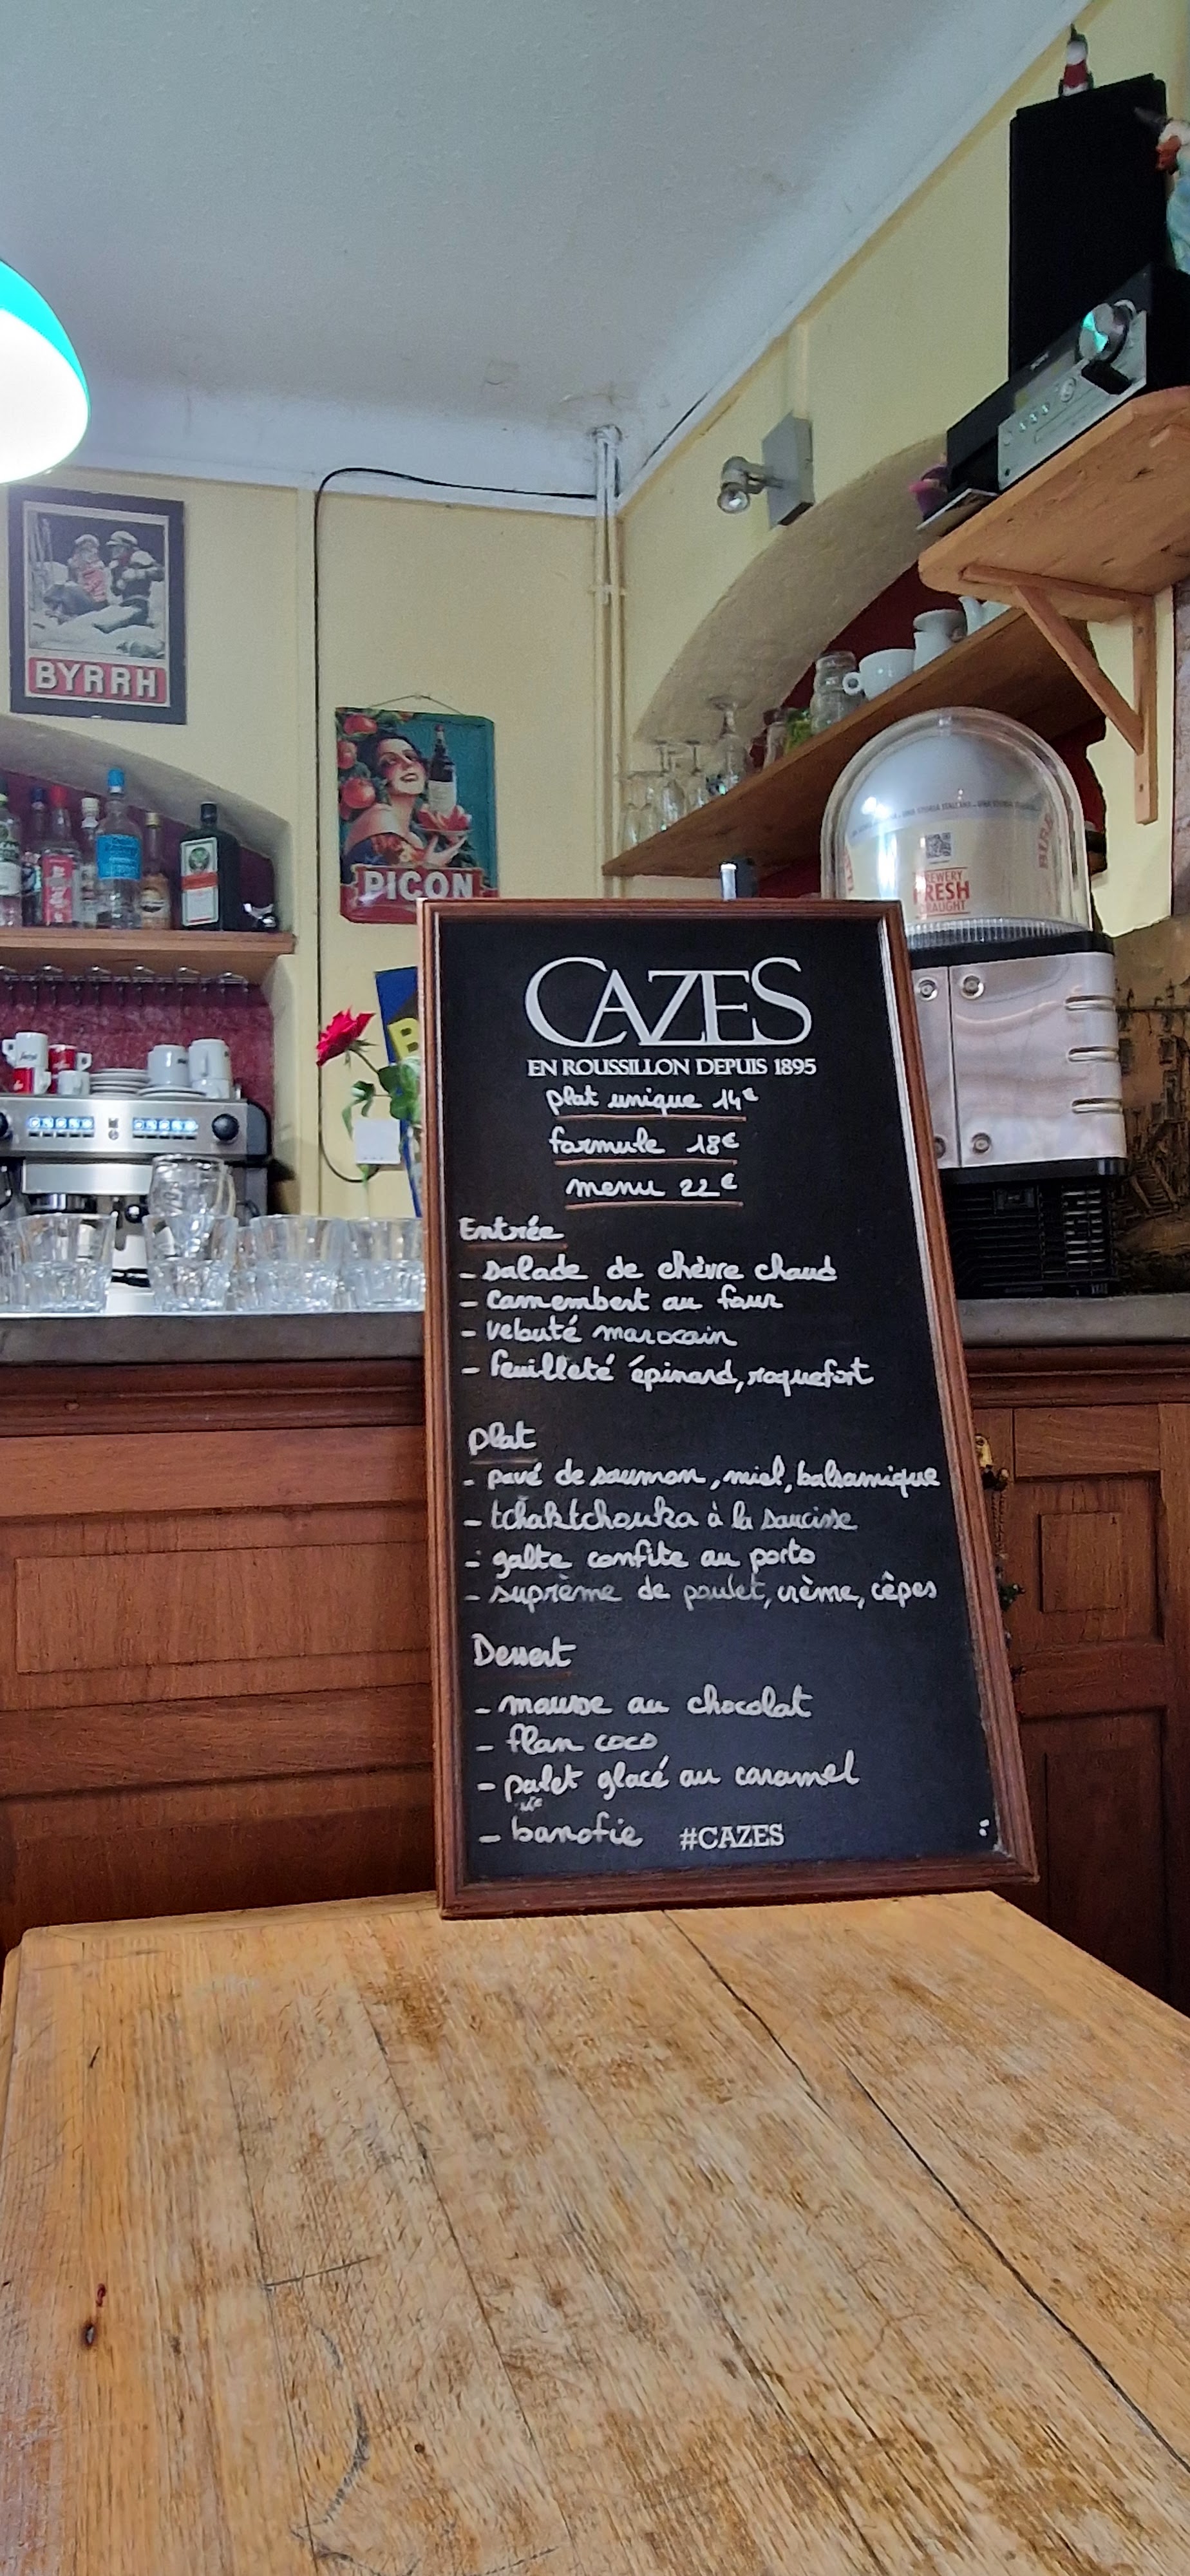 BYRRH
PICON
BREWERY
FRESH
DRAUGHT
CAZES
EN ROUSSILLON DEPUIS 1895
plat unique 14€
formule 18€
menu 22€
Entrée
- salade de chèvre chaud
- camembert au four
- velouté marocain
- feuilleté épinard, roquefort
plat
- pavé de saumon, miel, balsamique
- tchaktchouka à la saucisse
- galte confite au porto
- suprème de poulet, crème, cêpes
Dessert
- mousse au chocolat
- flan coco
- palet glacé au caramel
- banofie #CAZES